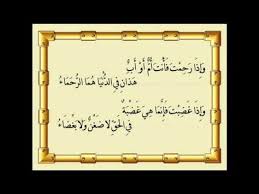 وَإِذَا رَحِمْتَ فَأَنْتَ أُمٌّ أَوْ أَبٌ
هَذَانِ فِي الدُّنْيَا هُمَا الرُّحَمَاءُ
وَإِذَا غَضِبْتَ فَإِنَّمَا هِيَ غَضْبَةٌ
فِي الْحَقِّ لَا ضِغْنٌ وَلَا بَغْضَاءُ